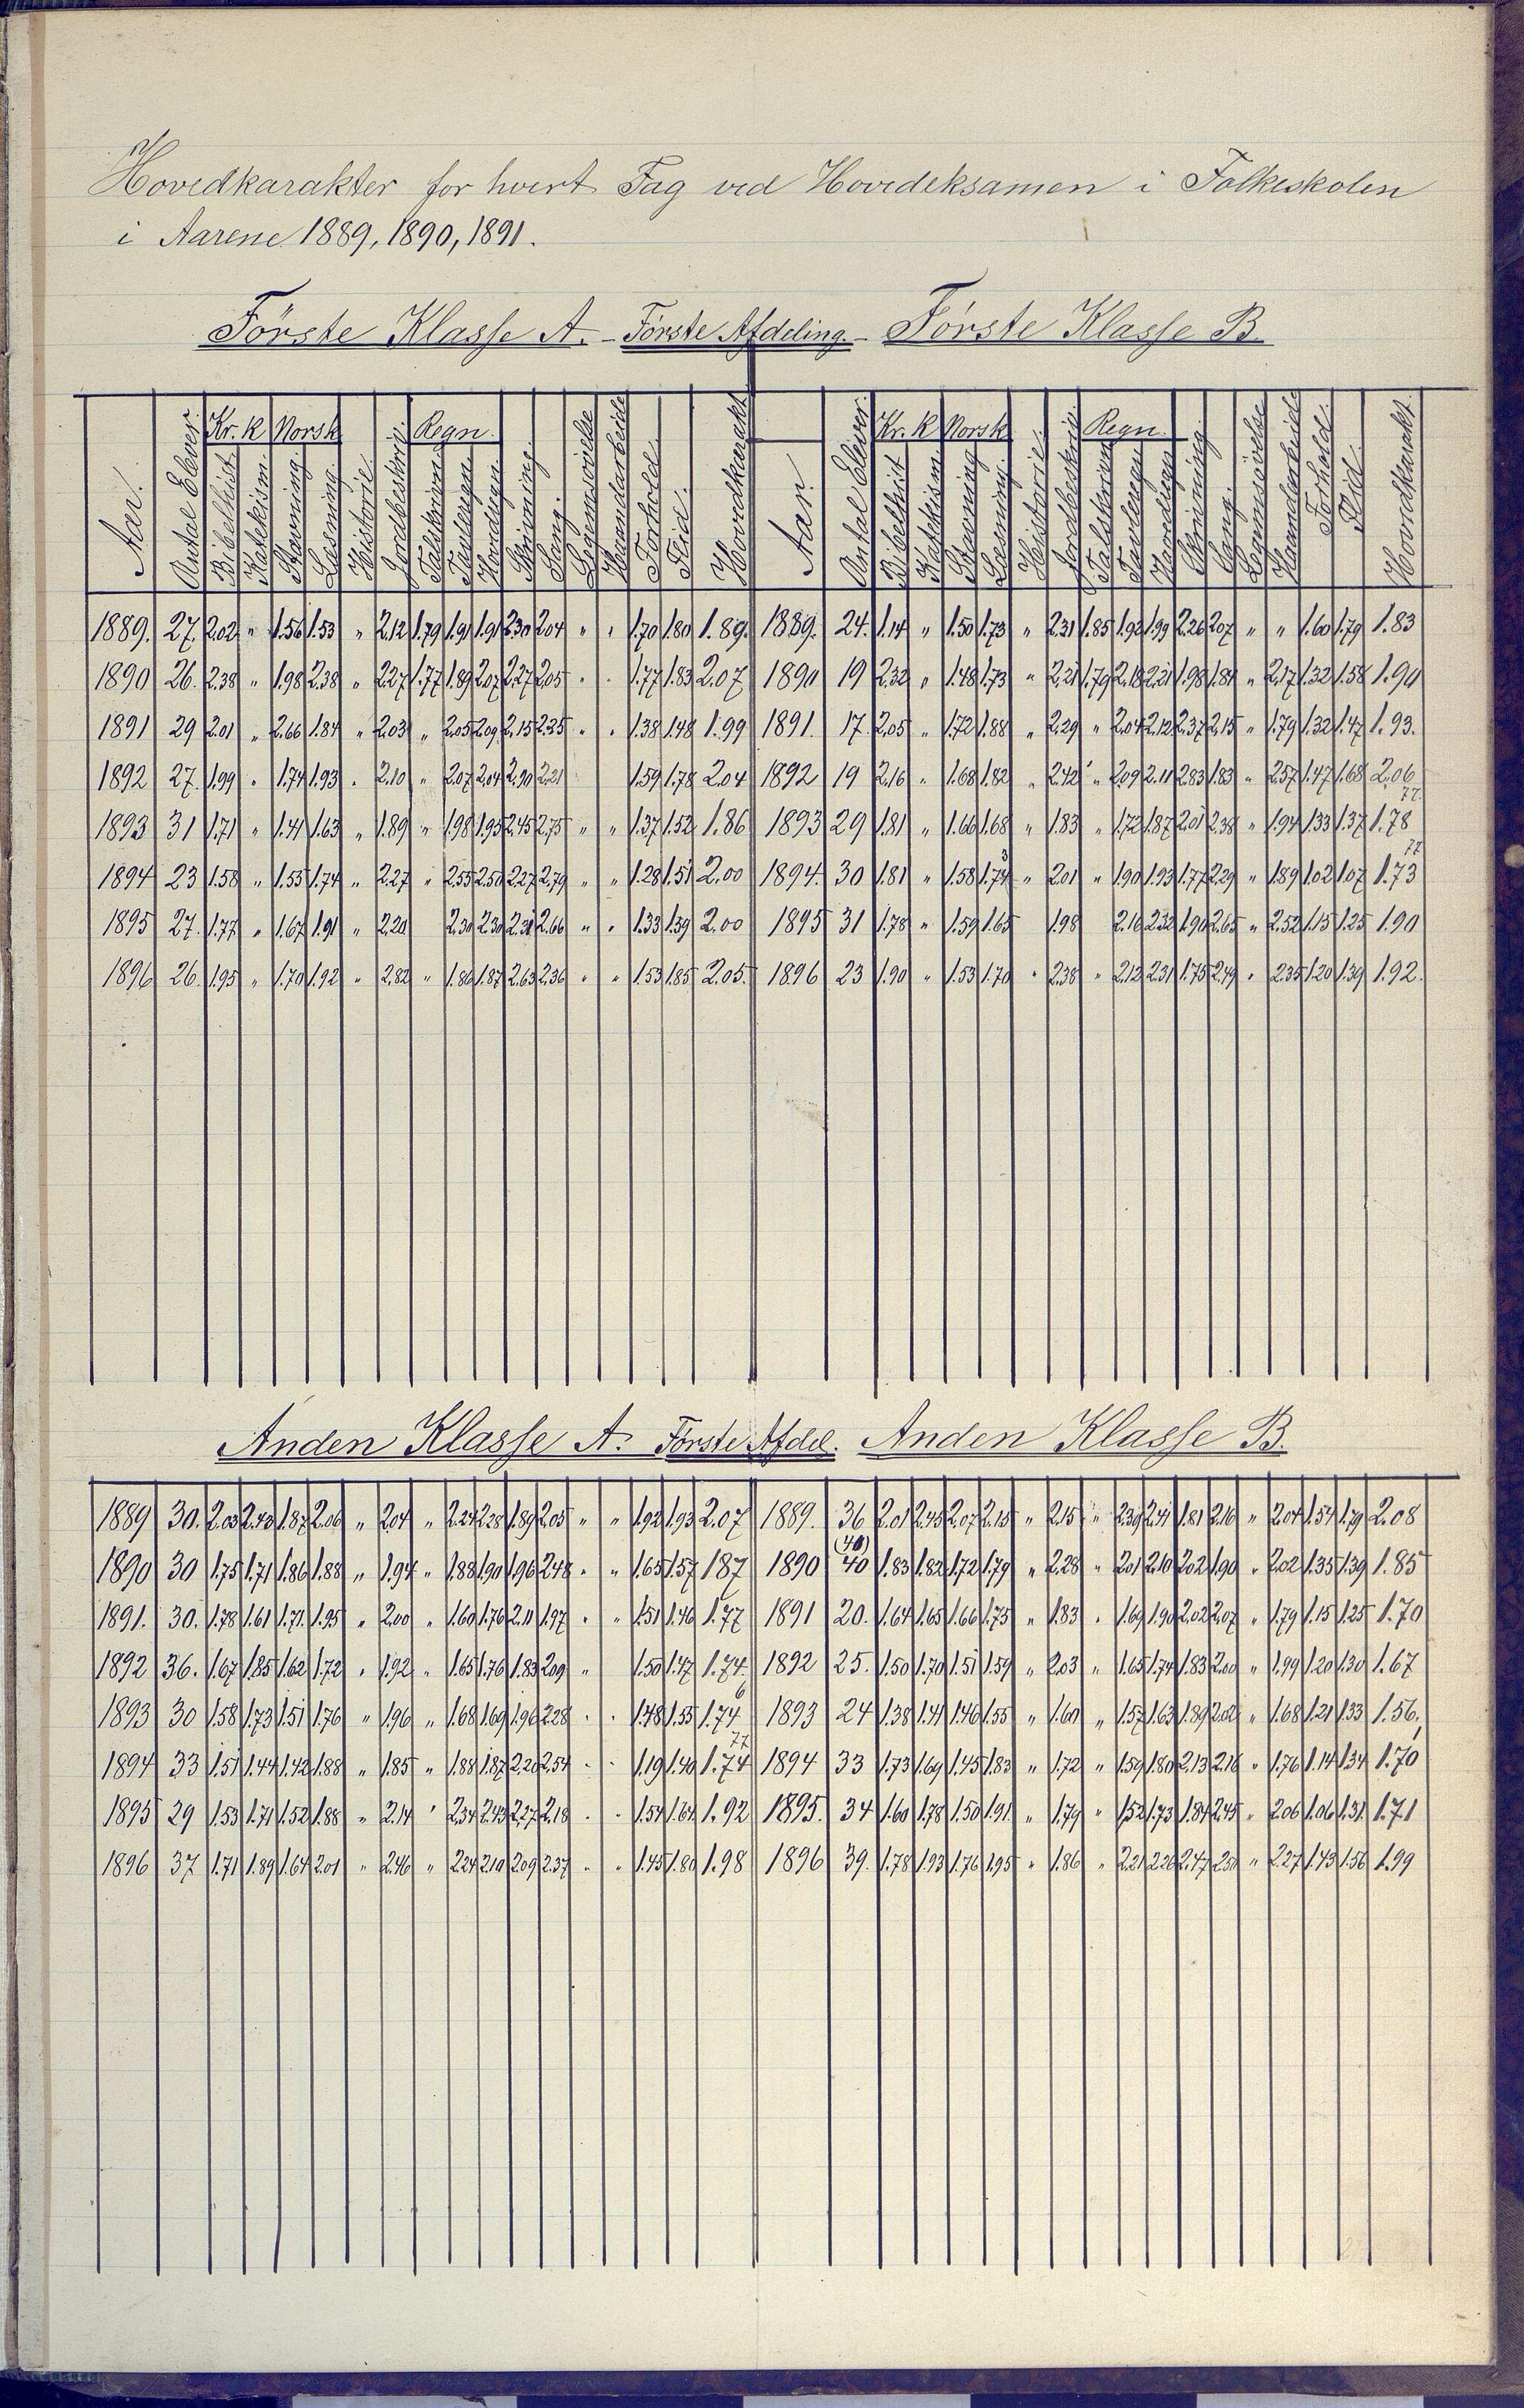 Hovedkarakter for hvert Fag ved Hovedeksamen i Folkeskolen
i Aarene 1889, 1890, 1891.
Første Klasse A. - Første Afdeling. - Første Klasse B.
Kr. k Norsk Regn. Kr. k Norsk Regn.
Aar. Antal Elever. Bibelhist. Katekism. Stavning Læsning. Historie. Jordbeskriv. Talskrivn. Tavleregn. Hovedregn. Skrivning. Sang. Legemsøvelse Haandarbeide Forhold. Flid. Hovedkarakt. Aar. Antal Elever. Bibelhist Katekism. Stavning Læsning. Historie. Jordbeskriv. Talskrivn. Tavleregn. Hovedregn. Skrivning. Sang. Legemsøvelse Haandarbeide Forhold. Flid. Hovedkarakt.
1889. 27. 2.02 " 1.56 1.53 " 2.12 1.79 1.91 1.91 2.30 2.04 " " 1.70 1.80 1.89. 1889. 24. 1.14 " 1.50 1.73 " 2.31 1.85 1.92 1.99 2.26 2.07 " " 1.60 1.79 1.83
1890 26. 2.38 " 1.98 2.38 " 2.27 1.77 1.89 2.07 2.27 2.05 " " 1.77 1.83 2.07 1890 19 2.32 " 1.48 1.73 " 2.21 1.79 2.18 2.21 1.98 1.84 " 2.17 1.32 1.58 1.90
1891 29 2.01 " 2.66 1.84 " 2.03 " 2.05 2.09 2.15 2.35 " " 1.38 1.48 1.99 1891. 17. 2.05 " 1.72 1.88 " 2.29 " 2.04 2.12 2.37 2.15 " 1.79 1.32 1.47 1.93.
1892 27. 1.99 " 1.74 1.93 " 2.10 " 2.07 2.04 2.90 2.21 1.59 1.78 2.04 1892 19 2.16 " 1.68 1.82 " 2.42 " 2.09 2.11 2.83 1.83 " 2.57 1.47 1.68 2.06
1893 31 1.71 " 1.41 1.63 " 1.89 " 1.98 1.95 2.45 2.75 " " 1.37 1.52 1.86 1893 29 1.81 " 1.66 1.68 " 1.83 " 1.72 1.87 2.01 2.38 " 1.94 1.33 1.37 1.78 77.
1894 23 1.58 " 1.55 1.74 " 2.27 " 2.55 2.50 2.27 2.79 " " 1.28 1.51 2.00 1894. 30 1.81 " 1.58 1.74 3 " 2.01 " 1.90 1.93 1.77 2.29 " 1.89 1.02 1.07 1.73 77
1895 27. 1.77 " 1.67 1.91 " 2.20 2.30 2.30 2.31 2.66 " " 1.33 1.59 2.00 1895 31 1.78 " 1.59 1.65 1.98 2.16 2.32 1.90 2.65 " 2.52 1.15 1.25 1.90
1896 26. 1.95 " 1.70 1.92 " 2.82 " 1.86 1.87 2.63 2.36 " " 1.53 1.85 2.05. 1896 23 1.90 " 1.53 1.70 " 2.38 " 2.12 2.31 1.75 2.49 " 2.35 1.20 1.39 1.92.
Anden Klasse A. Første Afdel. Anden Klasse B.
1889 30. 2.03 2.43 1.87 2.06 " 2.04 " 2.24 2.28 1.89 2.05 " " 1.92 1.93 2.07 1889. 36 2.01 2.45 2.07 2.15 " 2.15 " 2.39 2.41 1.81 2.16 " 2.04 1.54 1.79 2.08
1890 30 1.75 1.71 1.86 1.88 " 1.94 " 1.88 1.90 1.96 2.48 " " 1.65 1.57 1.87 1890 (40) 40 1.83 1.82 1.72 1.79 " 2.28 " 2.01 2.10 2.02 1.90 " 2.02 1.35 1.39 1.85
1891. 30. 1.78 1.61 1.71. 1.95 " 2.00 " 1.60 1.76 2.11 1.97 " " 1.51 1.46 1.77 1891 20. 1.64 1.65 1.66 1.75 " 1.83 " 1.69 1.90 2.02 2.07 " 1.79 1.15 1.25 1.70
1892 36. 1.67 1.85 1.62 1.72 " 1.92 " 1.65 1.76 1.83 2.09 " 1.50 1.47 1.74. 1892 25. 1.50 1.70 1.51 1.59 " 2.03 " 1.65 1.74 1.83 2.00 " 1.99 1.20 1.30 1.67
1893 30 1.58 1.73 1.51 1.76 " 1.96 " 1.68 1.69 1.96 2.28 " " 1.48 1.55 1.74 6 1893 24 1.38 1.41 1.46 1.55 " 1.60 " 1.57 1.63 1.89 2.02 " 1.68 1.21 1.33 1.56.
1894 33 1.51 1.44 1.42 1.88 " 1.85 " 1.88 1.87 2.20 2.54 " " 1.19 1.40 1.74 77 1894 33 1.73 1.69 1.45 1.83 " 1.72 " 1.59 1.80 2.13 2.16 " 1.76 1.14 1.34 1.70
1895 29 1.53 1.71 1.52 1.88 " 2.14 " 2.34 2.43 2.27 2.18 " " 1.54 1.64. 1.92 1895. 34 1.60 1.78 1.50 1.91. " 1.79 " 1.52 1.73 1.84 2.45 " 2.06 1.06 1.31. 1.71
1896 37 1.71 1.89 1.64 2.01 " 2.46 " 2.24 2.10 2.09 2.37 " " 1.45 1.80 1.98 1896 39. 1.78 1.93 1.76 1.95 " 1.86 " 2.21 2.26 2.47 2.50 " 2.27 1.43 1.56 1.99